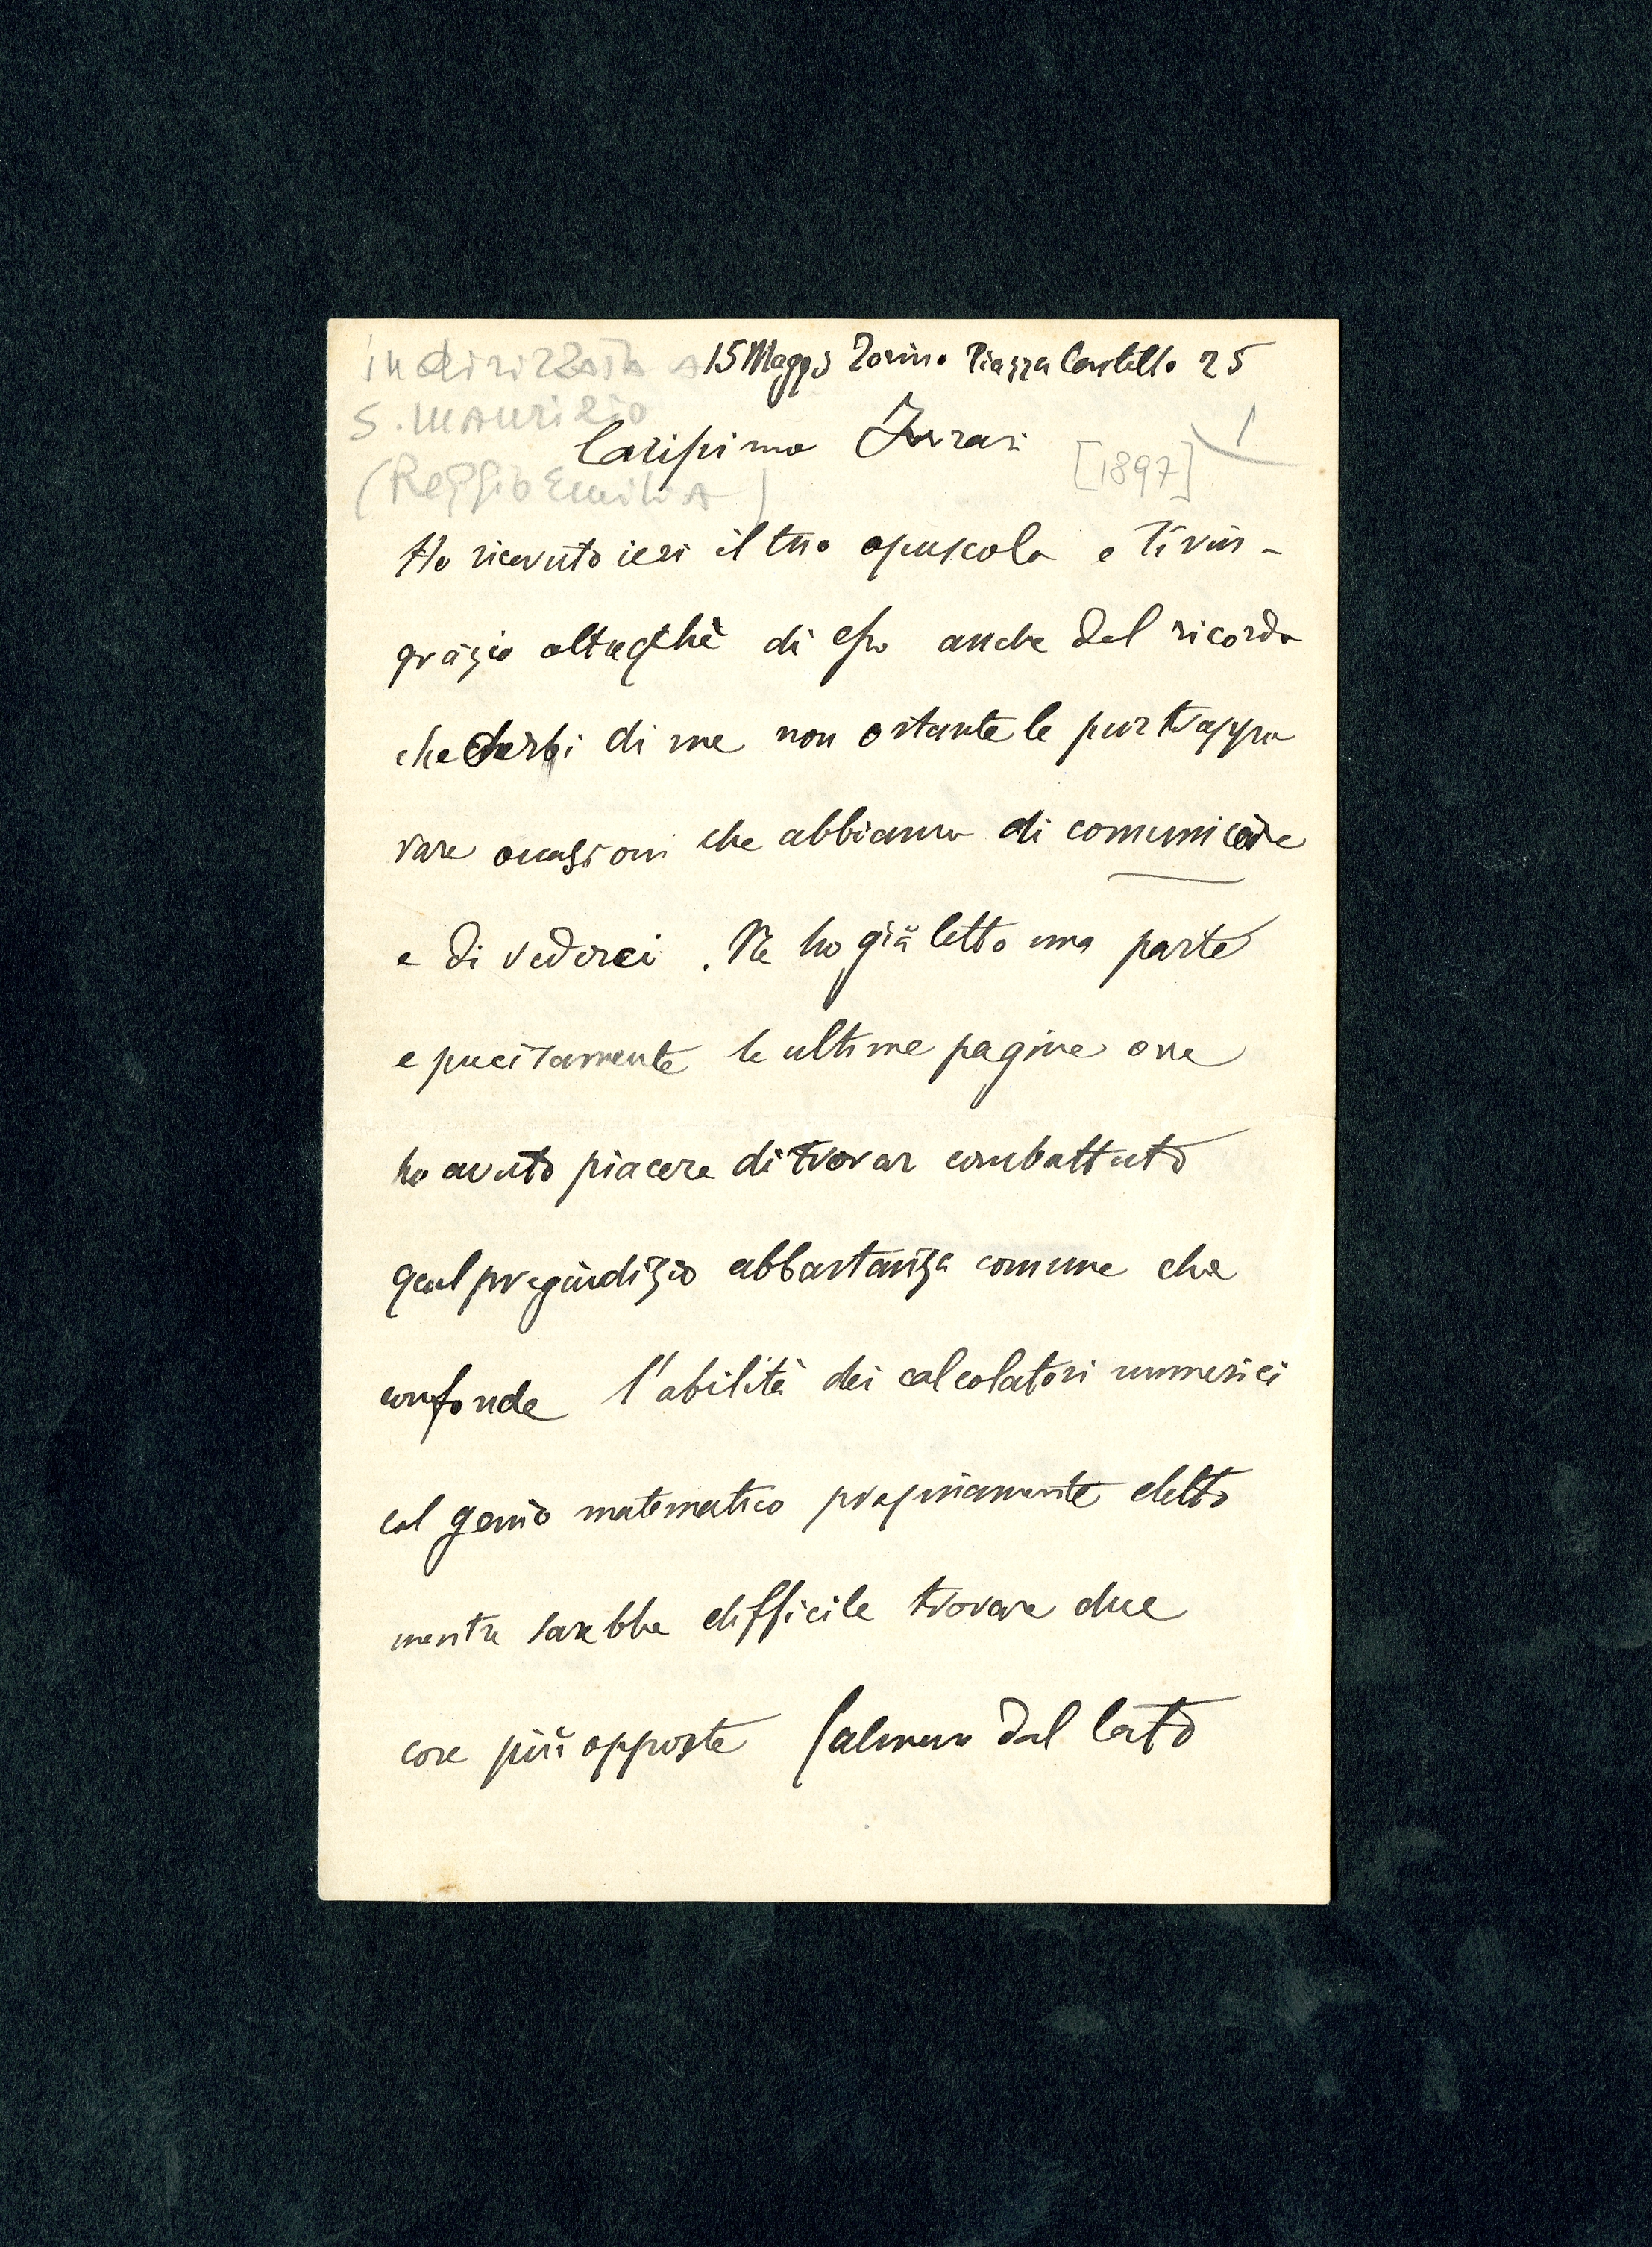 indirizzata a 15 Maggio Torino Piazza Castello 25
S. Maurizio
Carissimo Ferrari [1897] 1
(Reggio Emilia)
Ho ricevuto ieri il tuo opuscolo e ti rin-
grazio oltreché di esso anche del ricordo
che serbi di me non ostante le purtroppo
rare occasioni che abbiamo di comunicare
e di vederci. Ne ho già letto una parte
e precisamente le ultime pagine ove
ho avuto piacere di trovar combattuto
quel pregiudizio abbastanza comune che
confonde l'abilità dei calcolatori numerici
col genio matematico propriamente detto
mentre sarebbe difficile trovare due
cose più opposte (almeno dal lato